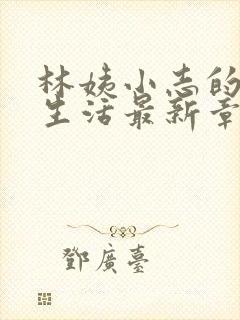 林姨小志的
生活最新章
鄧廣臺